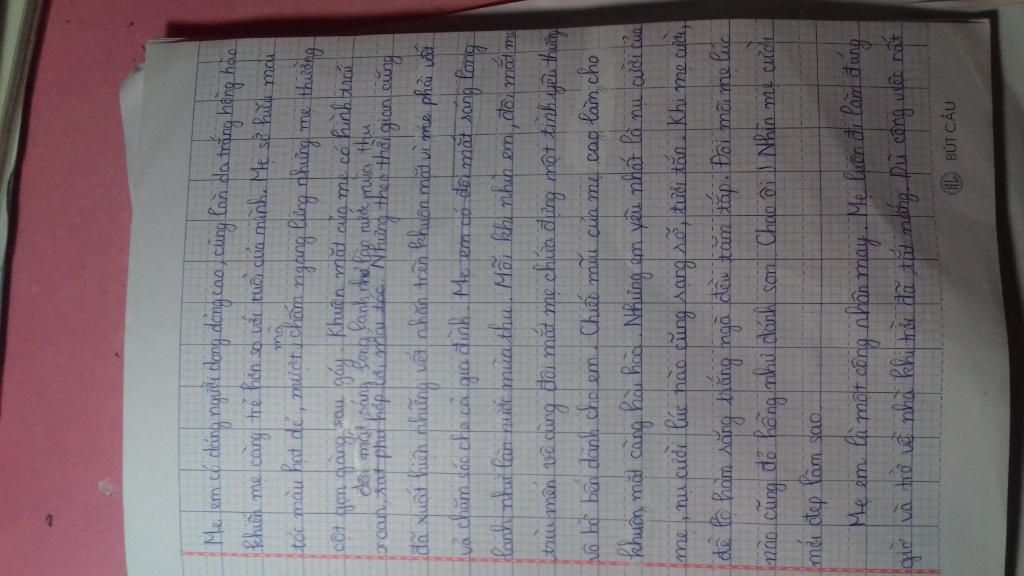 Mẹ em có dáng người dong dỏng cao, cùng làn da trắng hồng hào
khiến mẹ càng trẻ hơn so với tuổi của mình. Mẹ sở hữu mái
tóc màu hạt dẻ, mượt mà chấm ngang lưng nhưng mẹ thường
cột gọn gàng sau gáy. Khuôn mặt của mẹ có hình trái
đôi mắt sáng long lanh như làn nước mùa thu
xoan, Nhưng theo thời gian cũng
đã xuất hiện những vết nhăn trên khuôn mặt vì mẹ phải vất
vả chăm sóc cho cả gia đình. Mẹ em có đôi mắt sáng long
lanh như làn nước mùa thu. Mỗi khi nhìn em, đôi mắt mẹ
trìu mến vô cùng đôi mắt mẹ chứa đựng một tình yêu thương
vô bờ bến dành cho em. Chiếc mũi của mẹ cao làm cho
khuôn mặt càng hài hòa. Nhưng em yêu nhất là nụ cười của
mẹ, nụ cười lúc nào cũng rạng rỡ, tươi tắn. Khi mẹ cười,
để lộ hàm răng trắng ngà đều tăm tắp. Đôi môi mẹ lúc
nào cũng đỏ hồng như đánh son. Chao ôi! Nhìn mẹ cười
mới đẹp làm sao
Mẹ em là một công nhân may. Mẹ luôn đi làm đúng
giờ và trở về nhà khi trời đã tắt nắng. Dù công việc rất
BÚT CẦU